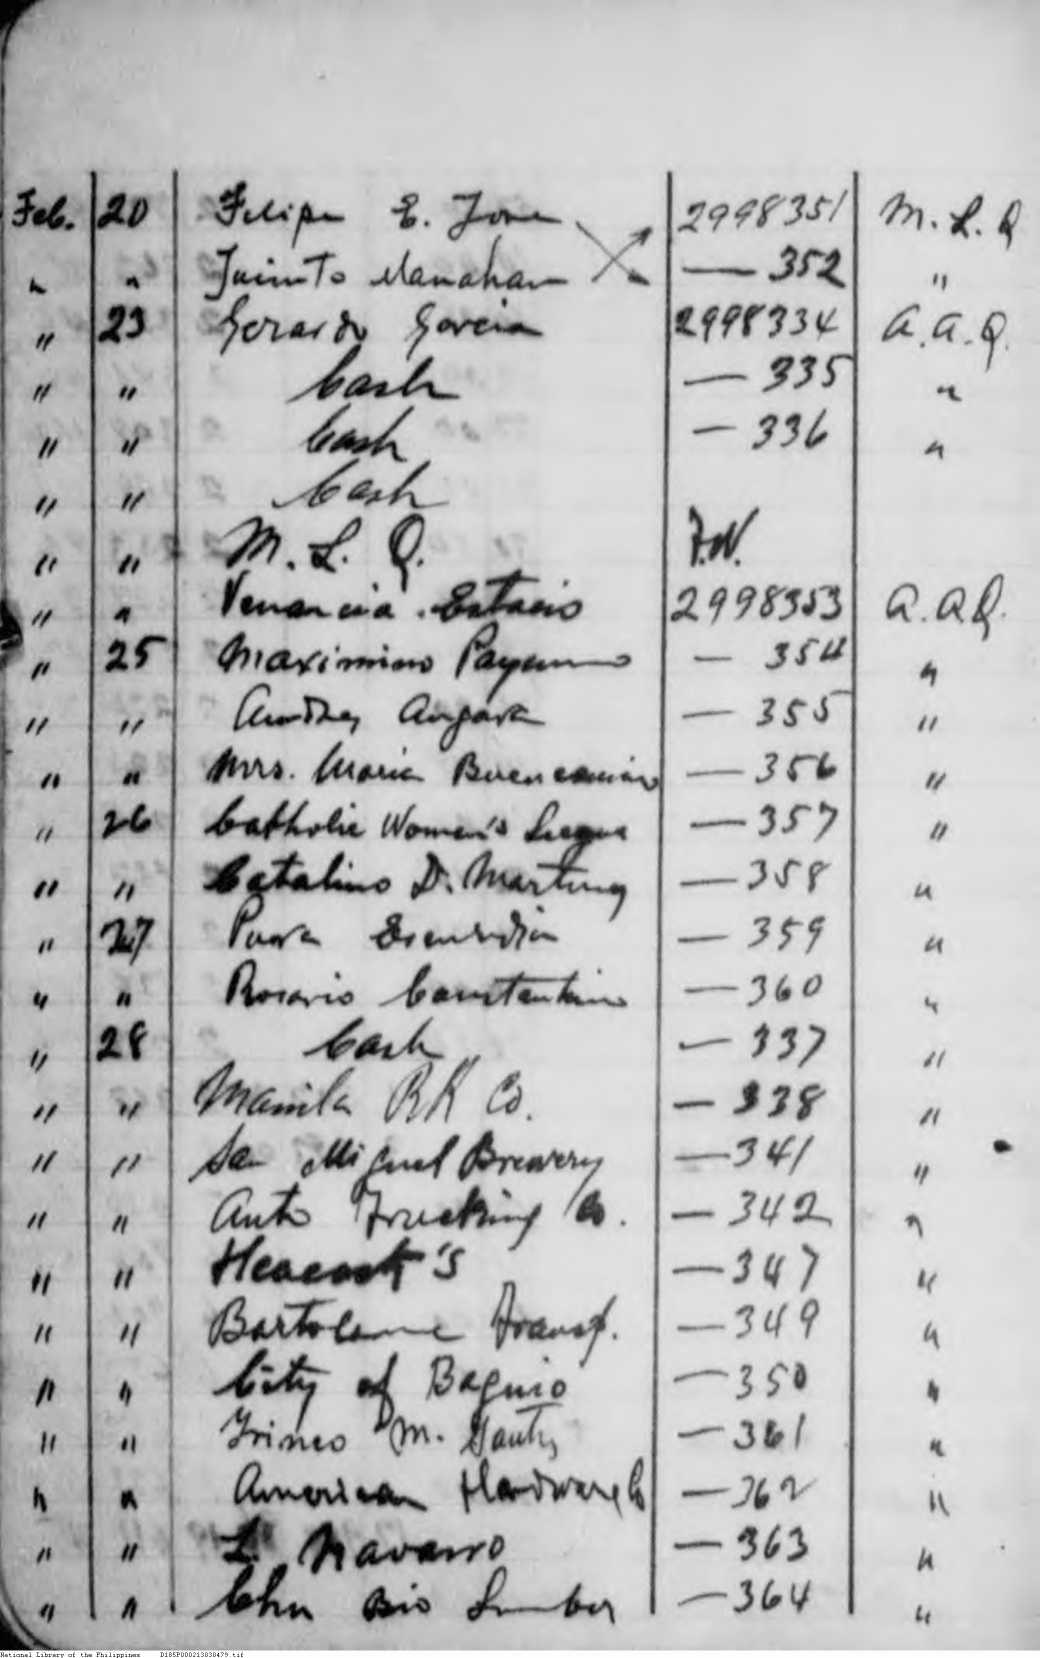 Feb. 20 Felipe E. Jose 2998351 M. L. Q
" " Jacinto Manahan — 352 "
" 23 Gerardo Garcia 2998334 A. A. Q.
" " Cash — 335 "
" " Cash — 336 "
" " Cash
" " M. L. Q. P.N.
" " Venancia Estacio 2998353 A. A Q.
" 25 Maximino — 354 "
" " Angara — 355 "
" " Mrs. Maria Buencamino — 356 "
" 26 Catholic Women's League — 357 "
" " Catalino D. Martinez — 358 "
" 27 Pura Escurdia — 359 "
" " Rosario Constantino — 360 "
" 28 Cash — 337 "
" " Manila RR Co. — 338 "
" " San Miguel Brewery — 341 "
" " Auto Trucking Co. — 342 "
" " Heacock's — 347 "
" " Bartolome Transp. — 349 "
" " City of Baguio — 350 "
" " Irineo M. — 361 "
" " American Hardware Co — 362 "
" " L. Navarro — 363 "
" " Chu Bio Lumber — 364 "
National Library of the Philippines D185P000213030479.tif